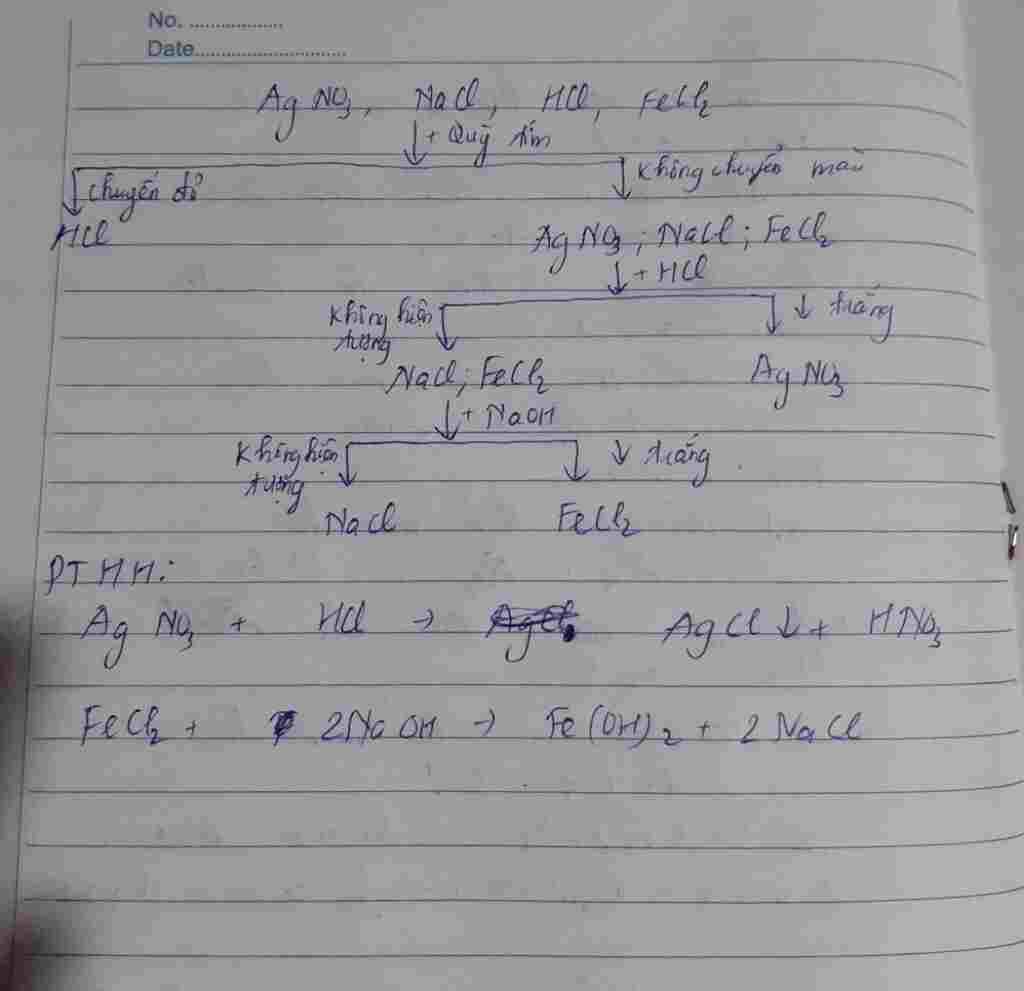 No. ................
Date............................
AgNO₃, NaCl, HCl, FeCl₂
↓ + Quỳ tím
Chuyển đỏ Không chuyển màu
HCl AgNO₃; NaCl; FeCl₂
↓ + HCl
Không hiện tượng ↓ trắng
NaCl; FeCl₂ AgNO₃
↓ + NaOH
Không hiện tượng ↓ trắng
NaCl FeCl₂
PTHH:
AgNO₃ + HCl → AgCl↓ + HNO₃
FeCl₂ + 2NaOH → Fe(OH)₂ + 2NaCl